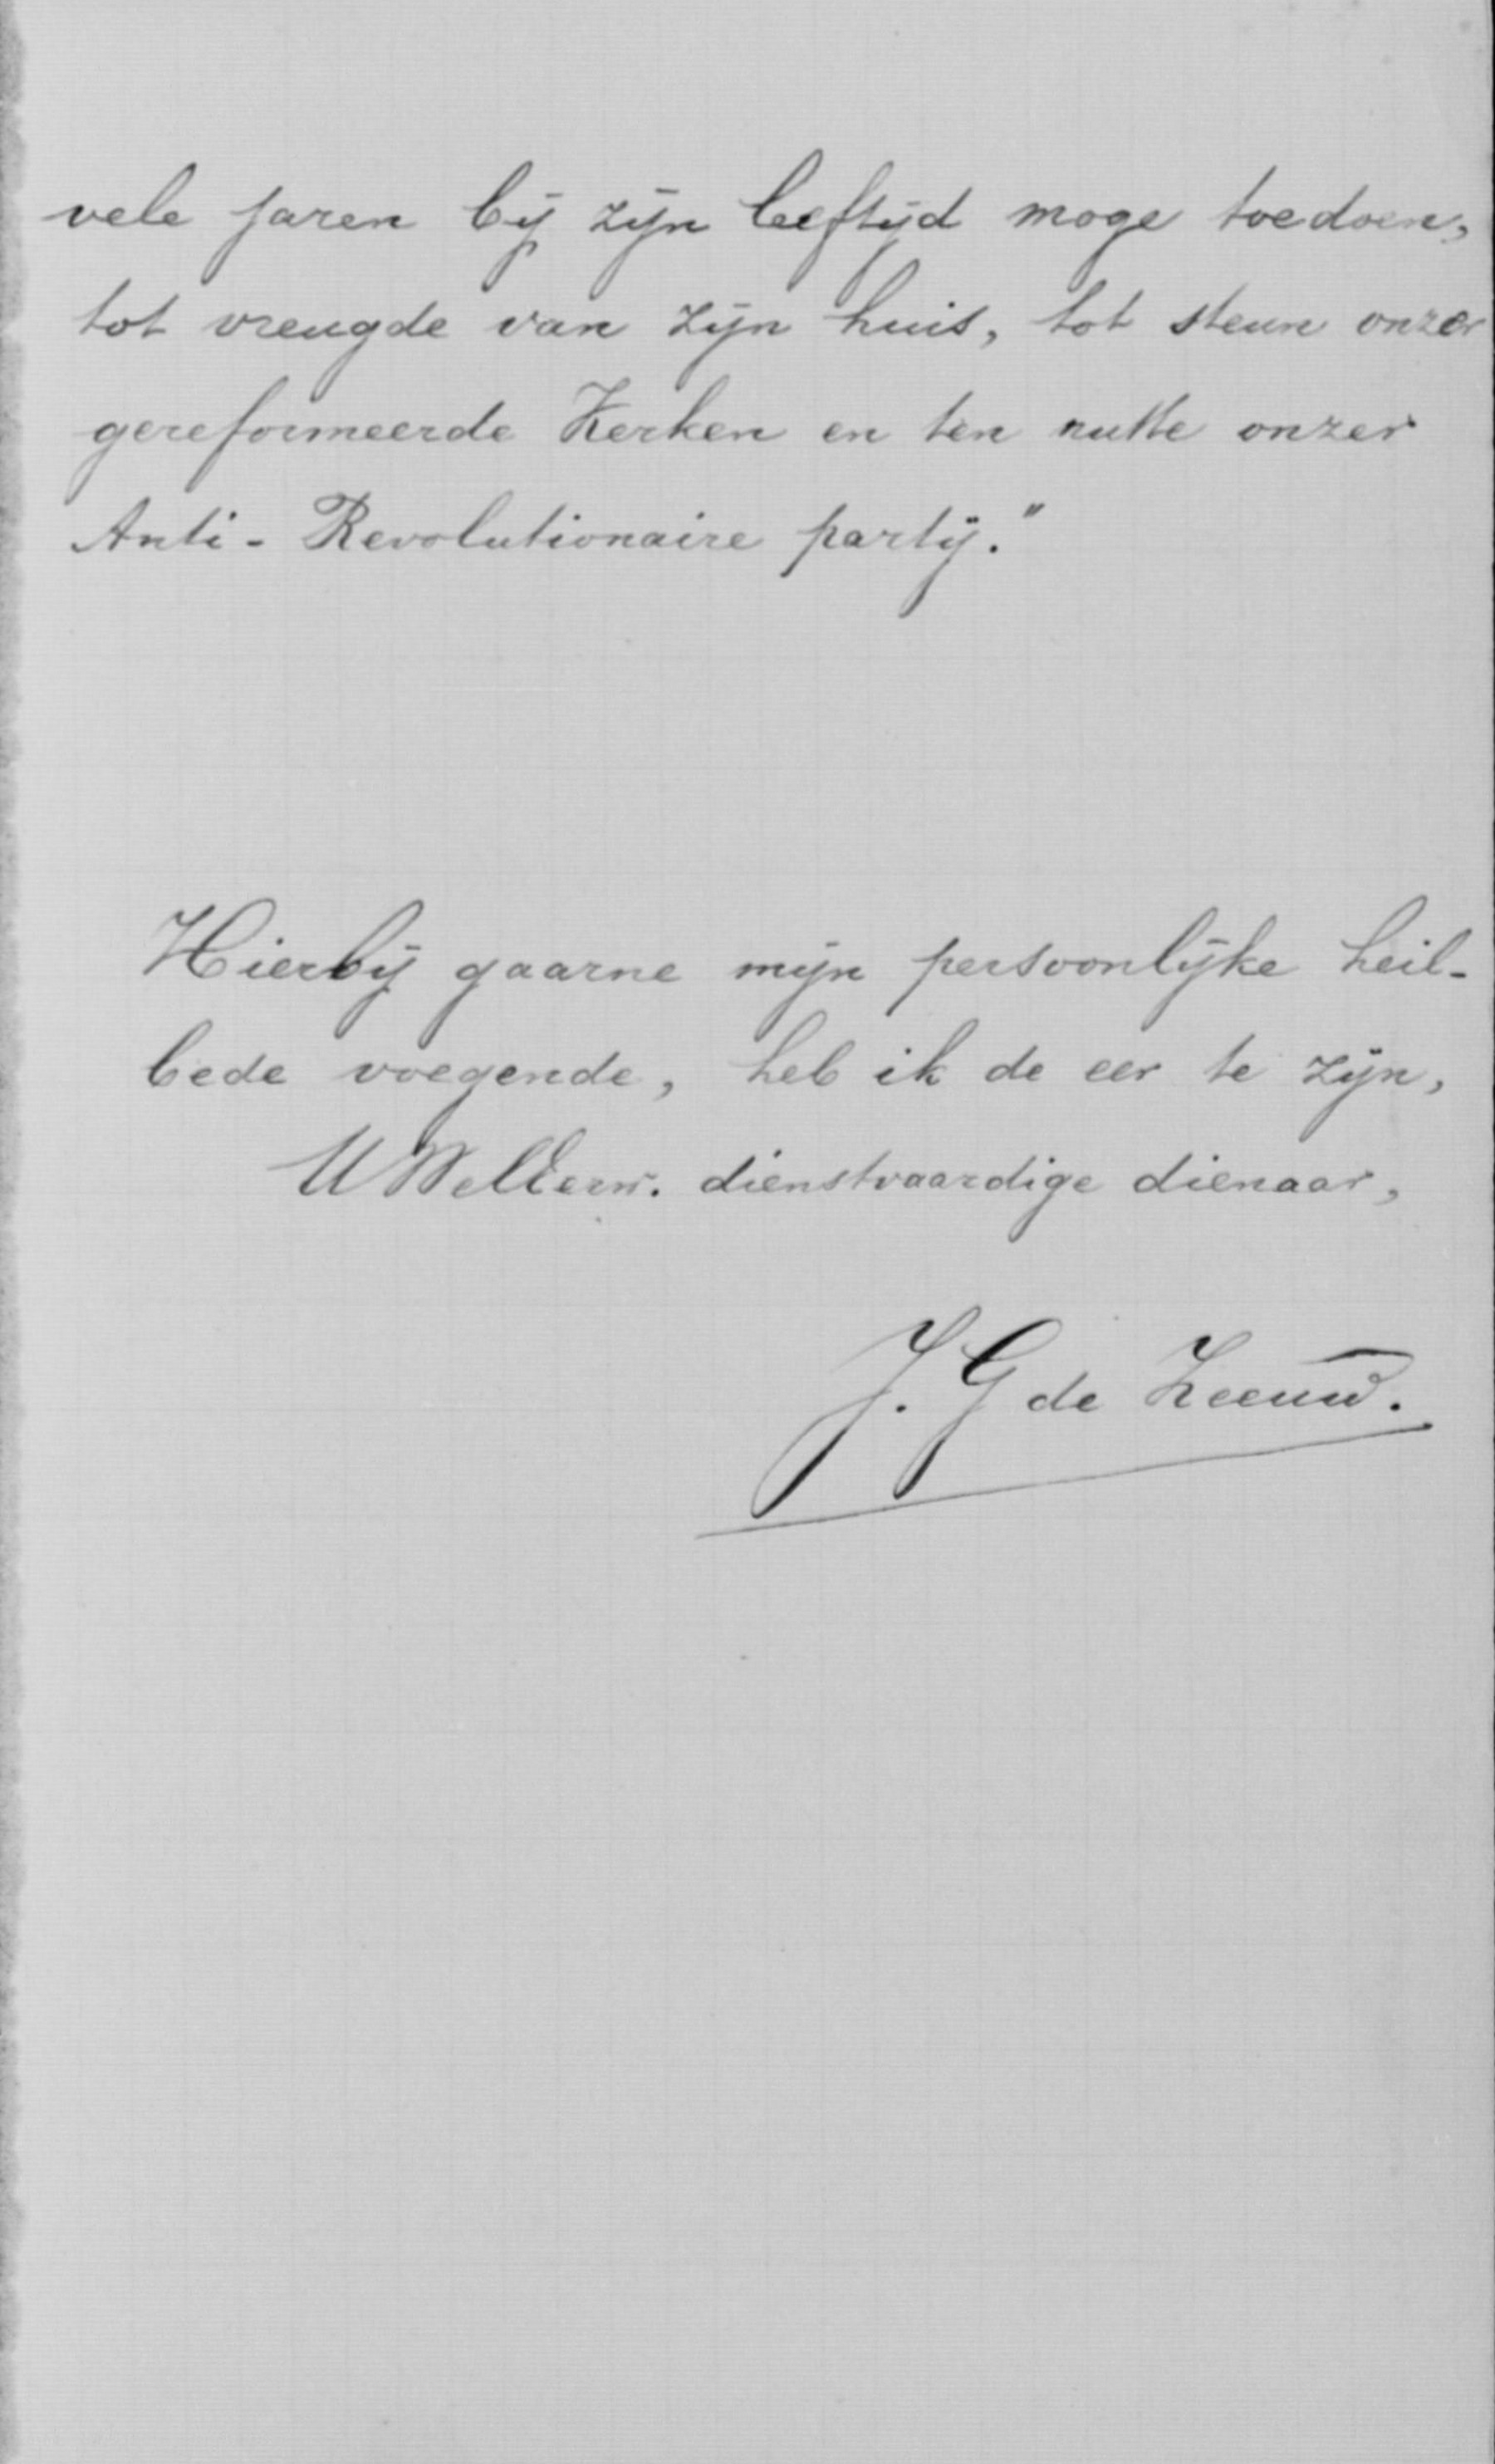 vele jaren bij zijn leeftijd moge toedoen,
tot vreugde van zijn huis, tot steun onzer
gereformeerde Kerken en ten nutte onzer
Anti-Revolutionaire partij."
Hierbij gaarne mijn persoonlijke heil-
bede voegende, heb ik de eer te zijn,
UWelEerw. dienstvaardige dienaar,
J. G de Zeeuw.